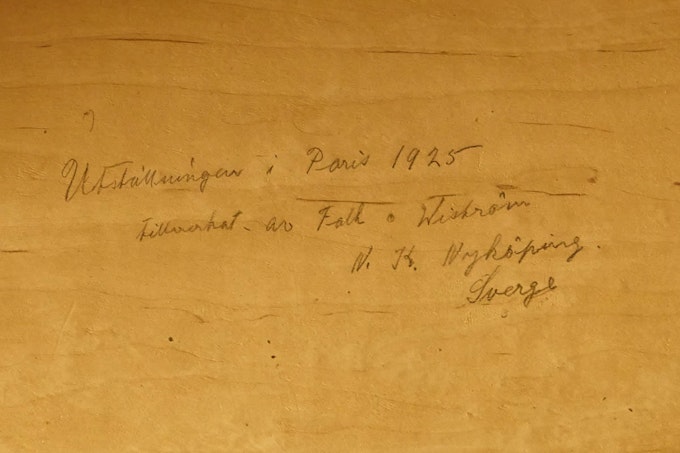 Utställningen i Paris 1925
tillverkat av Falk o Wiström
N. K. Nyköping.
Sverge